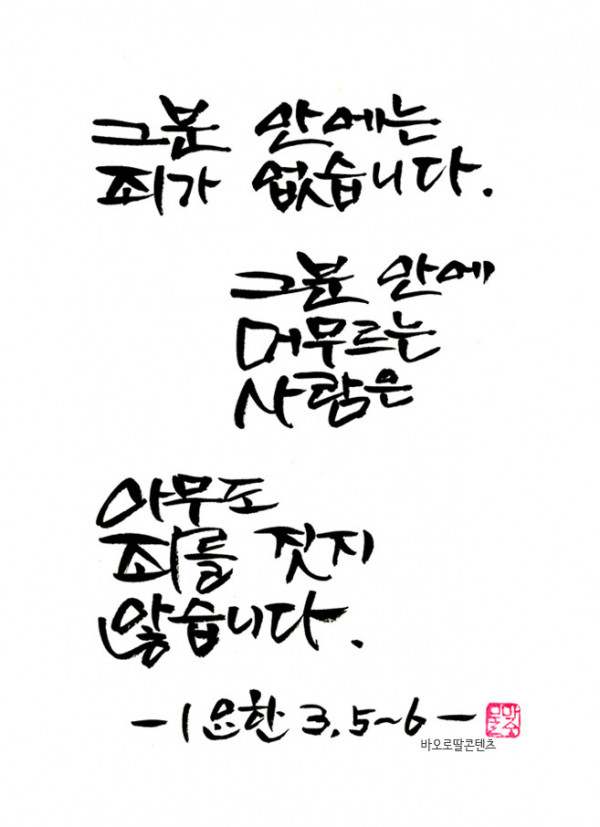 그분 안에는
죄가 없습니다.
그분 안에
머무르는
사람은
아무도
죄를 짓지
않습니다.
-1 요한 3,5~6-
바오로딸콘텐츠